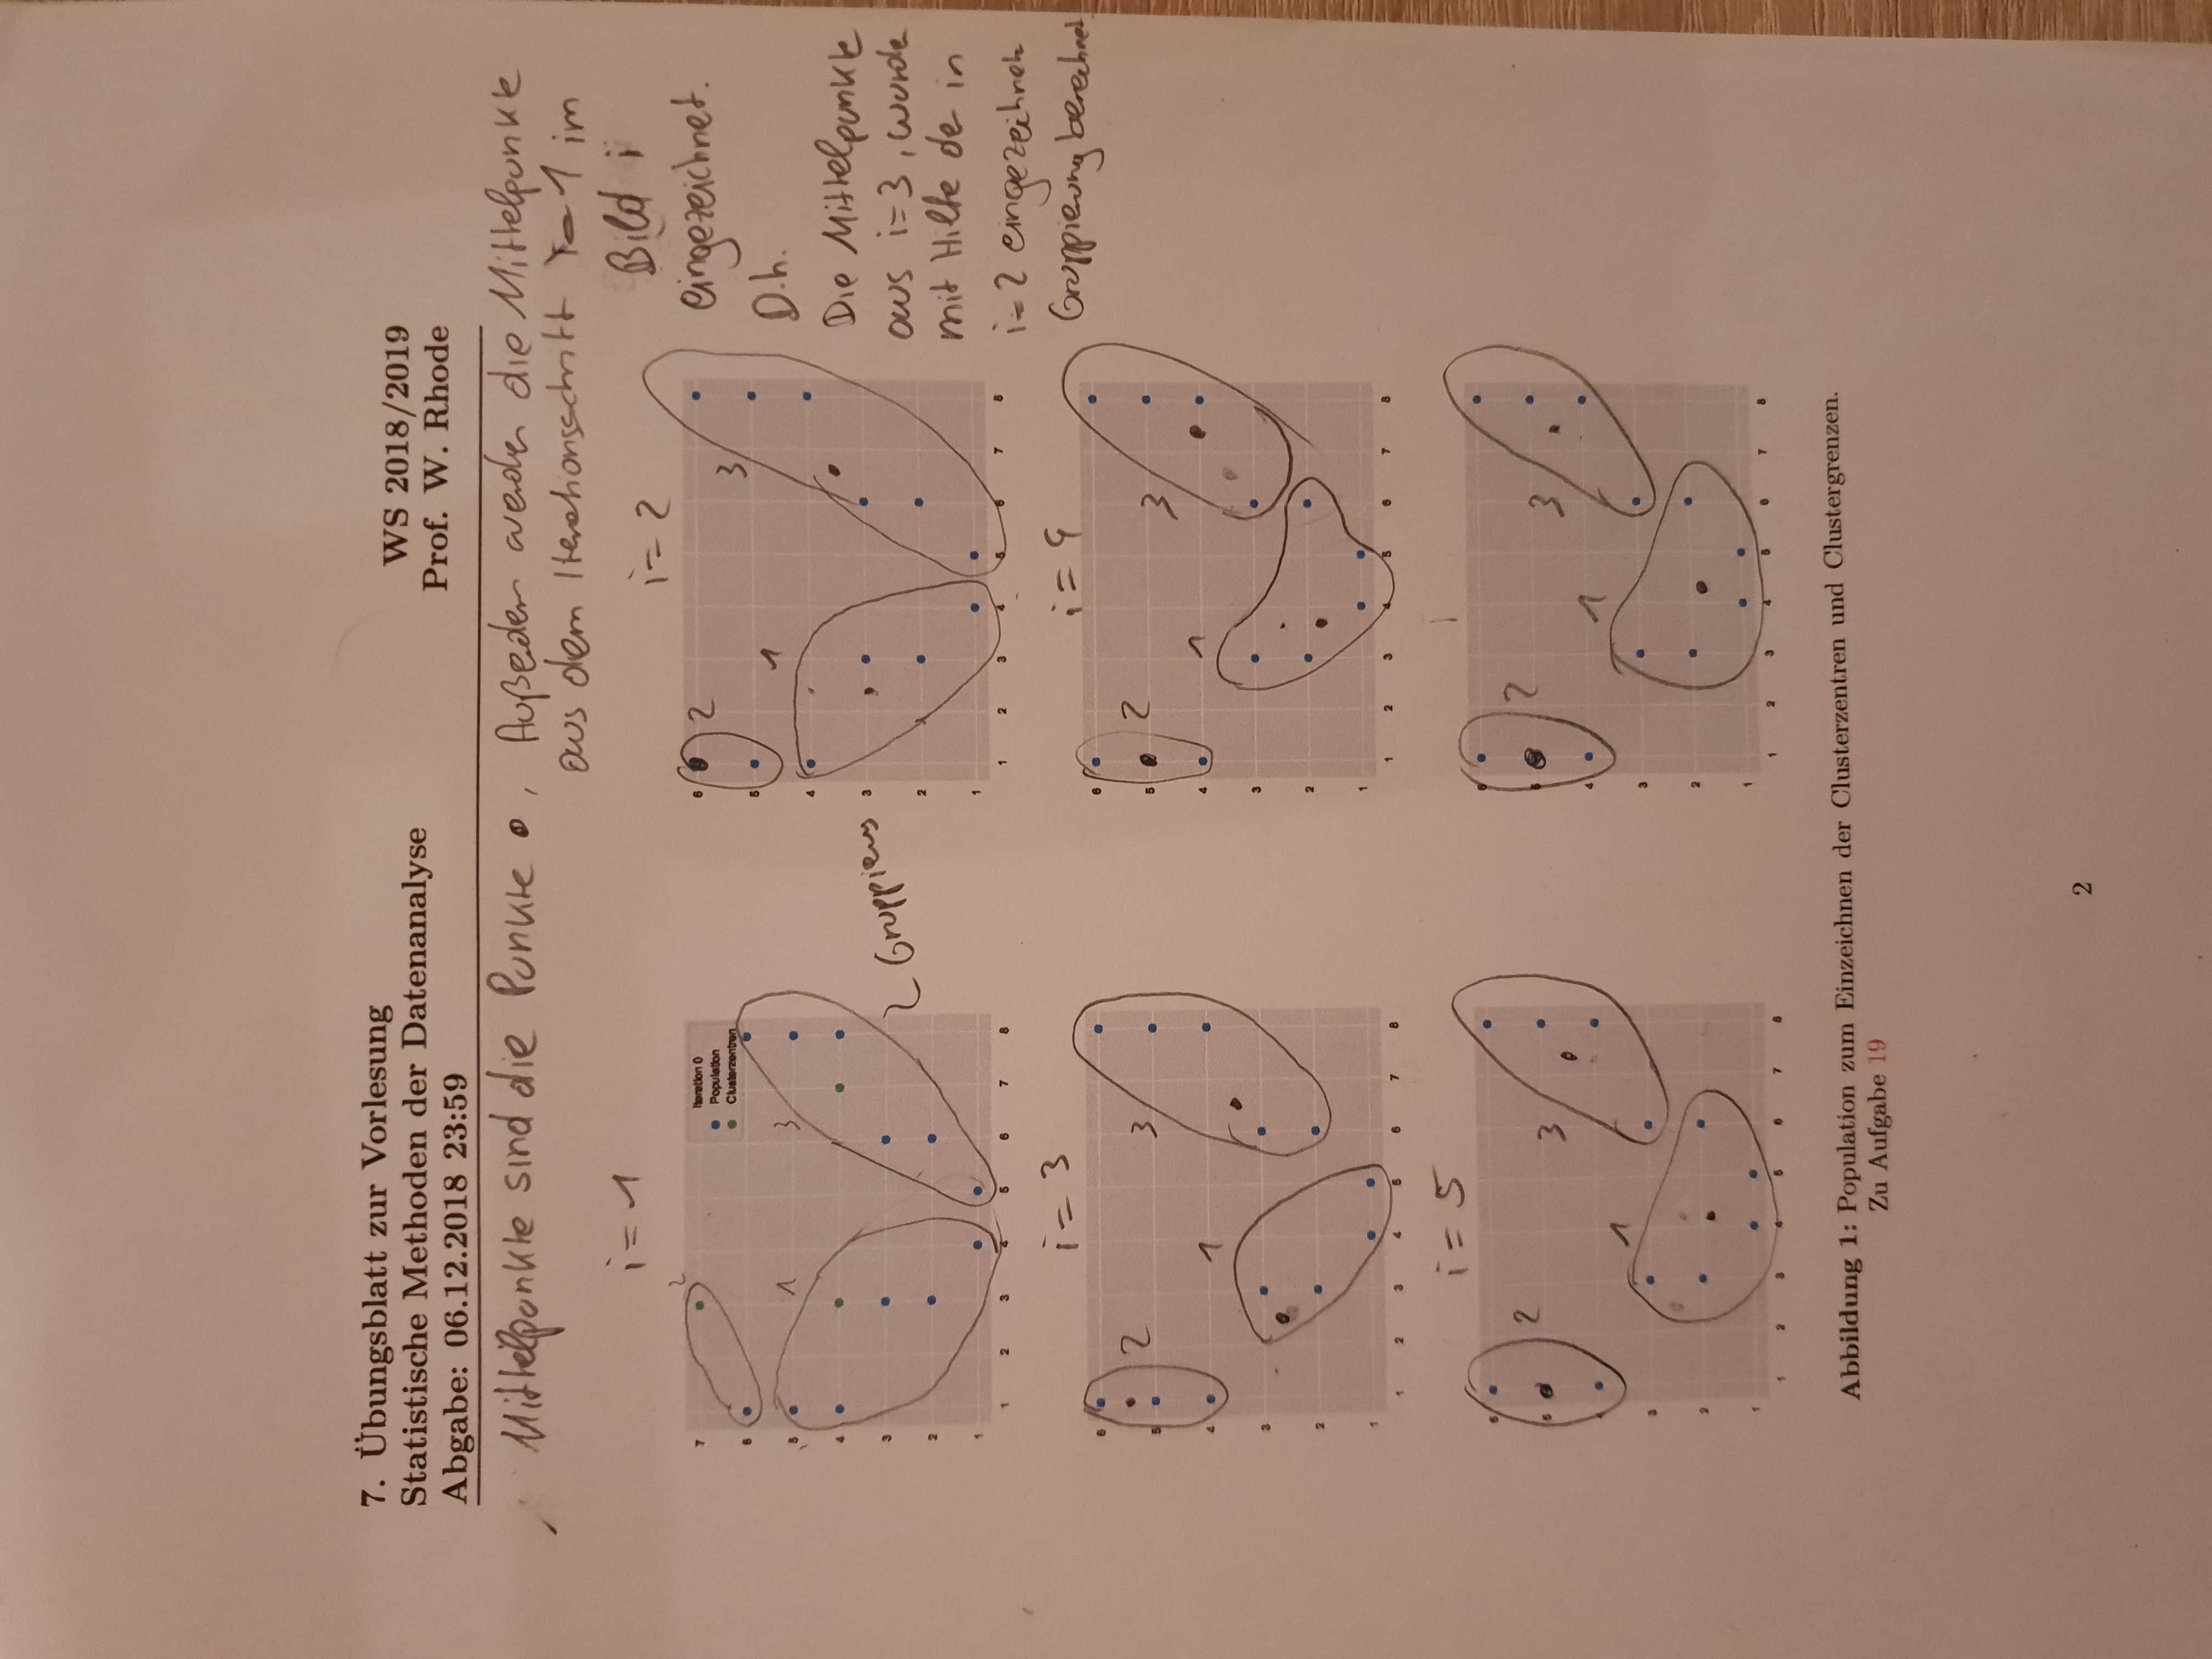 7. Übungsblatt zur Vorlesung
Statistische Methoden der Datenanalyse
Abgabe: 06.12.2018 23:59
WS 2018/2019
Prof. W. Rhode
Mittelpunkte sind die Punkte , Außerdem werden die Mittelpunkte
aus dem Iterationsschritt i-1 im
Bild i
eingezeichnet.
D.h.
Die Mittelpunkte
aus i=3, wurde
mit Hilfe de in
i=2 eingezeichnete
Gruppierung berechnet
i=1
2
7
6
5
4
3
2
1
Iteration 0
Population
Clusterzentren
1
3
1 2 3 4 5 6 7 8
2 Gruppierung
i=2
6
5
4
3
2
1
2
1
3
1 2 3 4 5 6 7 8
i=3
6
5
4
3
2
1
2
1
3
1 2 3 4 5 6 7 8
i=4
6
5
4
3
2
1
2
1
3
1 2 3 4 5 6 7 8
i=5
6
5
4
3
2
1
2
1
3
1 2 3 4 5 6 7 8
i
6
5
4
3
2
1
2
1
3
1 2 3 4 5 6 7 8
Abbildung 1: Population zum Einzeichnen der Clusterzentren und Clustergrenzen.
Zu Aufgabe 19
2